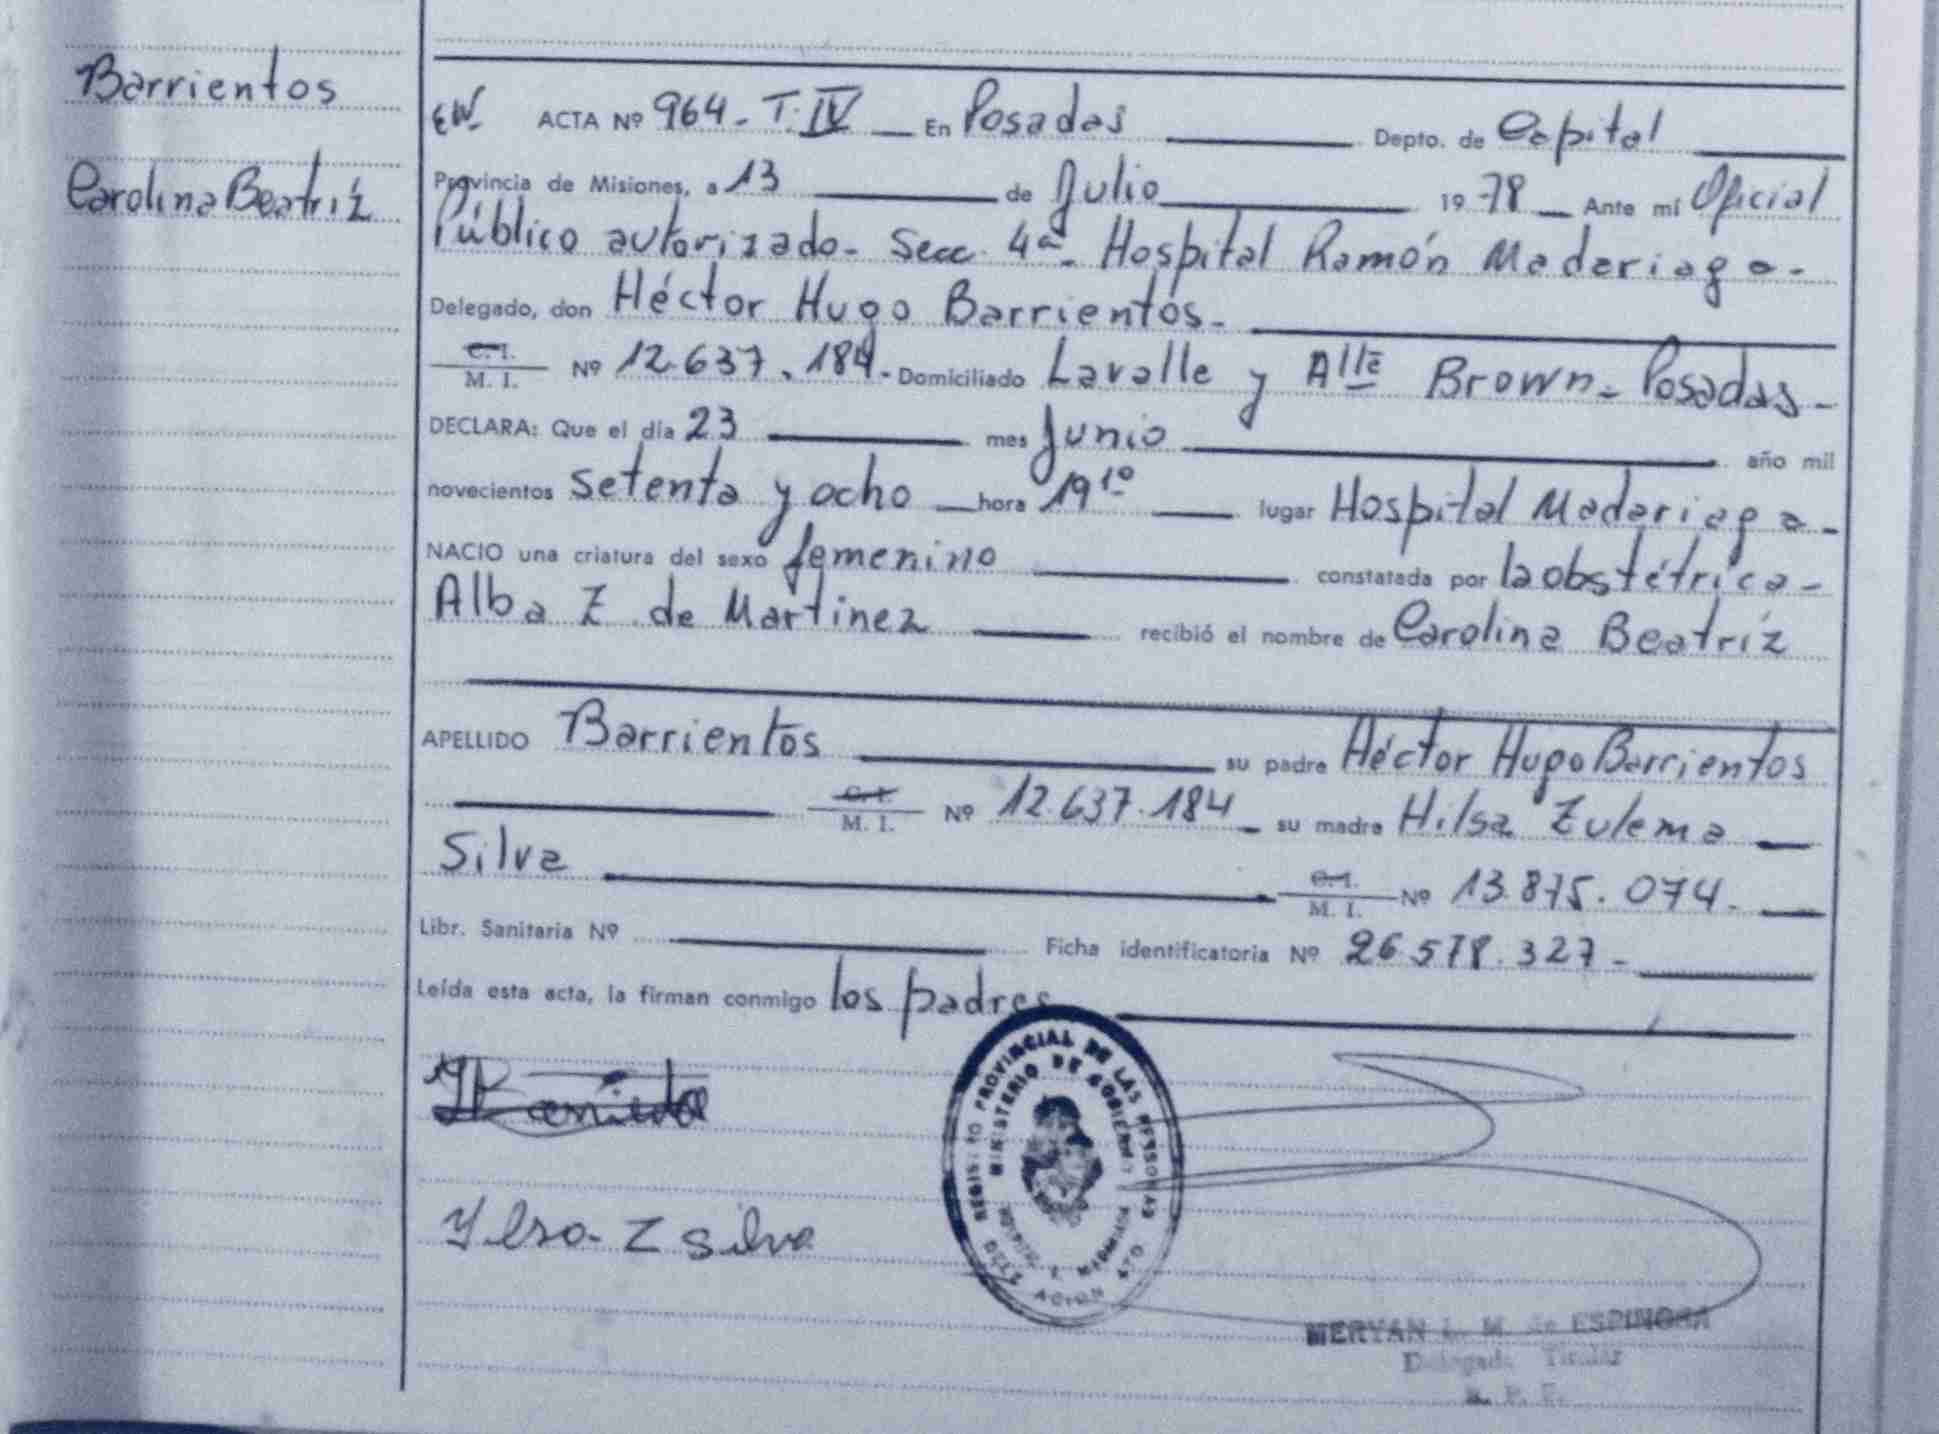 Barrientos
Carolina Beatríz
EW. ACTA Nº 964 - T. IV En Posadas Depto. de Capital
Provincia de Misiones, a 13 de Julio 19 78 Ante mí Oficial
Público autorizado - Secc. 4ª - Hospital Ramón Madariaga -
Delegado, don Héctor Hugo Barrientos -
C. I.
M. I. Nº 12.637.184 - Domiciliado Lavalle y Alte Brown - Posadas -
DECLARA: Que el día 23 mes Junio año mil
novecientos setenta y ocho hora 19¹⁰ lugar Hospital Madariaga -
NACIO una criatura del sexo femenino constatada por la obstétrica -
Alba Z. de Martinez recibió el nombre de Carolina Beatríz
APELLIDO Barrientos su padre Héctor Hugo Barrientos
C. I.
M. I. Nº 12.637.184 - su madre Hilsa Zulema
Silva C. I.
M. I. Nº 13.875.074 -
Libr. Sanitaria Nº Ficha identificatoria Nº 26.578.327 -
Leída esta acta, la firman conmigo los padres
REGISTRO PROVINCIAL DE LAS PERSONAS
MINISTERIO DE GOBIERNO
Ylsa Z Silva
MERYAN L. M. de ESPINOSA
Delegada Titular